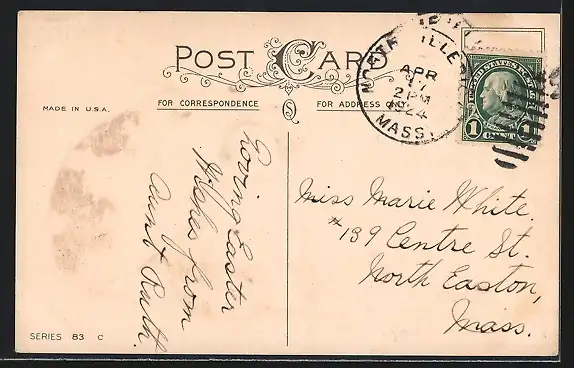 POST CARD
MADE IN U.S.A.
FOR CORRESPONDENCE
FOR ADDRESS ONLY
APR
17
2 PM
1924
MASS.
UNITED STATES POSTAGE
1 CENT 1
Loving Easter
Wishes from
Aunt Ruth.
Miss Marie White.
#139 Centre St.
North Easton,
Mass.
SERIES 83 C